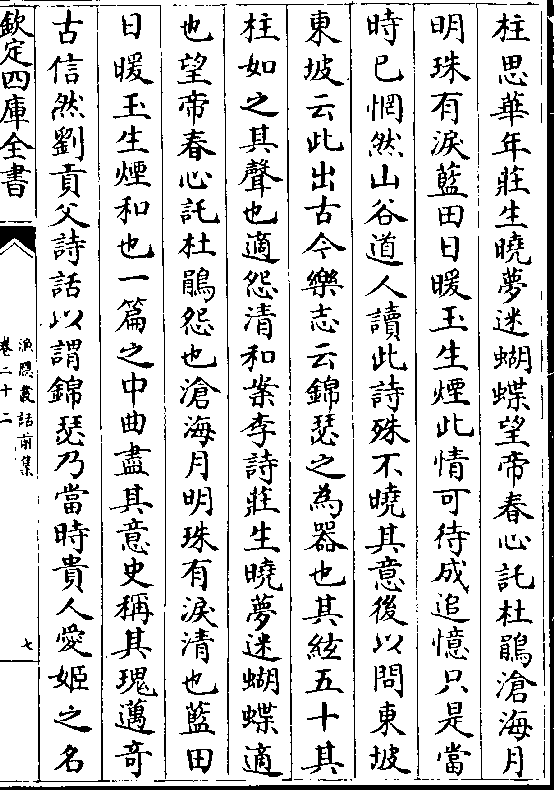 柱思華年莊生曉夢迷蝴蝶望帝春心託杜鵑滄海月
明珠有淚藍田日暖玉生煙此情可待成追憶只是當
時已惘然山谷道人讀此詩殊不曉其意後以問東坡
東坡云此出古今樂志云錦瑟之為器也其絃五十其
柱如之其聲也適怨清和案李詩莊生曉夢迷蝴蝶適
也望帝春心託杜鵑怨也滄海月明珠有淚清也藍田
日暖玉生煙和也一篇之中曲盡其意史稱其瑰邁奇
古信然劉貢父詩話以謂錦瑟乃當時貴人愛姬之名
欽定四庫全書
漁隱叢話前集
卷二十二
七